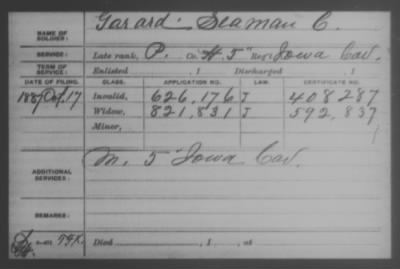 NAME OF SOLDIER: Garard Seaman C.
SERVICE: Late rank, P. Co. H. 5" Reg't Iowa Cav.
TERM OF SERVICE: Enlisted , 1 Discharged , 1
DATE OF FILING. CLASS. APPLICATION NO. LAW. CERTIFICATE NO.
1887 Oct. 17 Invalid, 626,176 J 408287
Widow, 821,831 J 592,837
Minor,
ADDITIONAL SERVICES: M. 5" Iowa Cav.
REMARKS:
Died , 1 , at